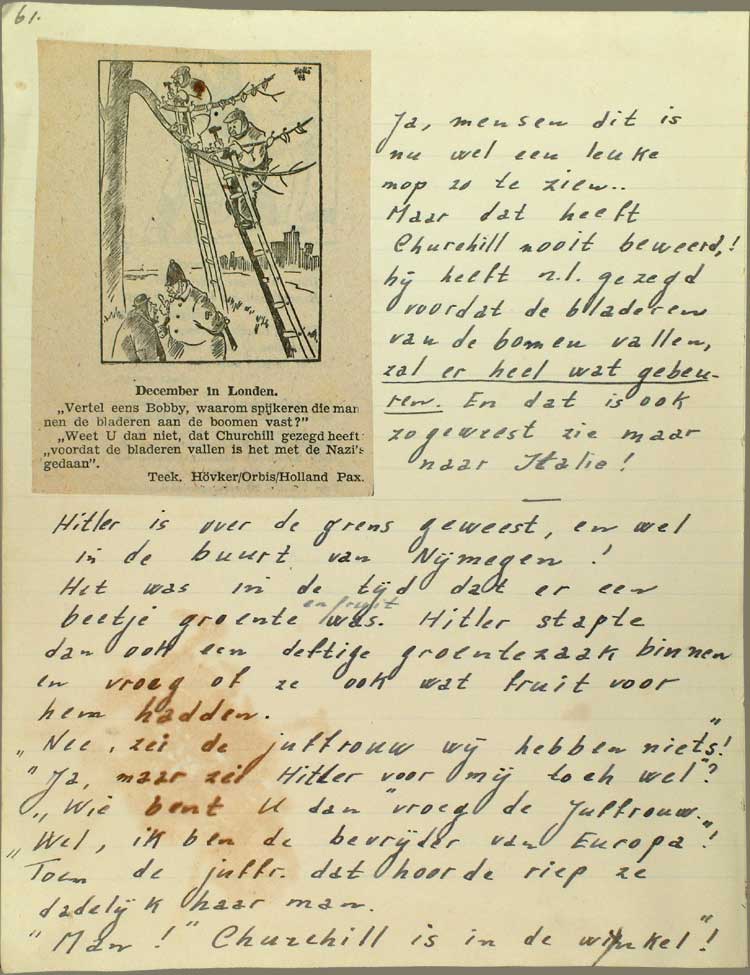 61.
December in Londen.
„Vertel eens Bobby, waarom spijkeren die man
nen de bladeren aan de boomen vast?"
„Weet U dan niet, dat Churchill gezegd heeft:
„voordat de bladeren vallen is het met de Nazi's
gedaan".
Teek. Hövker/Orbis/Holland Pax.
Ja, mensen dit is
nu wel een leuke
mop zo te zien..
Maar dat heeft
Churchill nooit beweerd,!
hij heeft n.l. gezegd
voordat de bladeren
van de bomen vallen,
zal er heel wat gebeu-
ren. En dat is ook
zo geweest zie maar
naar Italie!
Hitler is over de grens geweest, en wel
in de buurt van Nijmegen!
Het was in de tijd dat er een
en fruit
beetje groente was. Hitler stapte
dan ook een deftige groentezaak binnen
en vroeg of ze ook wat fruit voor
hem hadden.
„Nee, zei de juffrouw wij hebben niets"!
"Ja, maar zei Hitler voor mij toch wel"?
„Wie bent U dan" vroeg de Juffrouw.
„Wel, ik ben de bevrijder van Europa"!
Toen de juffr. dat hoorde riep ze
dadelijk haar man.
"Man!" Churchill is in de winkel"!